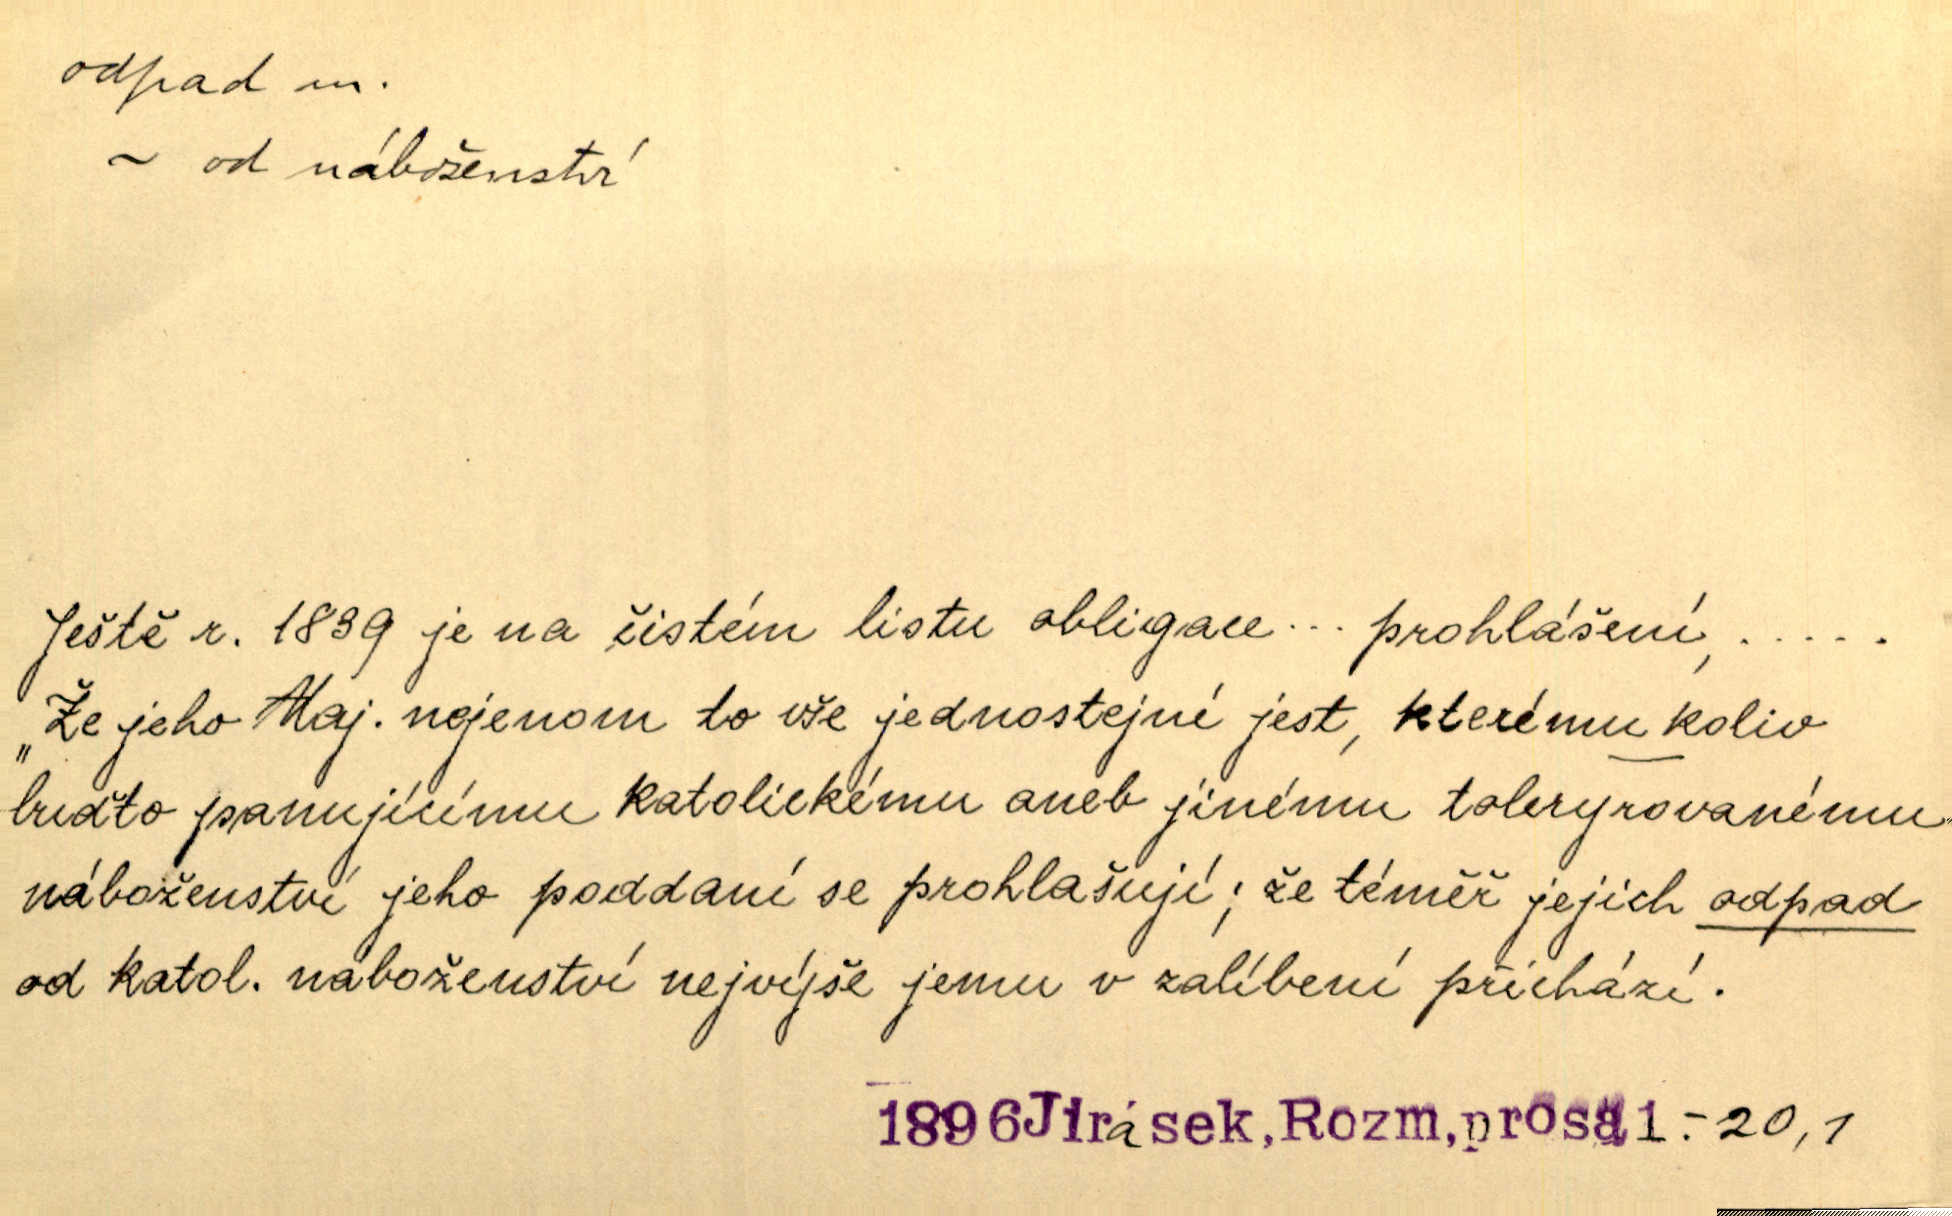 odpad m.
~ od náboženství
Ještě r. 1839 je na čistém listu obligace ... prohlášení, .....
„Že jeho Maj. nejenom to vše jednostejné jest, kterému koliv
buďto panujícímu katolickému aneb jinému toleryrovanému
náboženství jeho poddaní se prohlašují; že téměř jejich odpad
od katol. naboženství nejvíjše jemu v zalíbení přichází.
1896 Jirásek, Rozm, prosa 1.-20,1